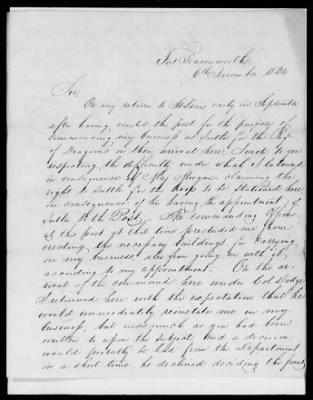 Fort Leavenworth
6th November 1834
Sir,
On my return to St Louis early in September
after having visited this post for the purpose of
commencing my business as Sutler for the Regt
of Dragoons on their arrival here, I wrote to you
respecting the difficulty under which I labored
in consequence of Maj. Morgan claiming the
right to Suttle for the troop to be stationed here
in consequence of his having the appointment of
Sutler to the Post. The commanding Officer
of this post at that time precluded me from
erecting the necessary buildings for carrying
on my business also from going on with it,
according to my appointment. On the ar-
rival of the command here under Col. Dodge
I returned here with the expectation that he
would immediately reinstate me in my
business, but inasmuch as you had been
written to upon the subject and a decision
would probably be had from the Department
in a short time, he declined deciding the point